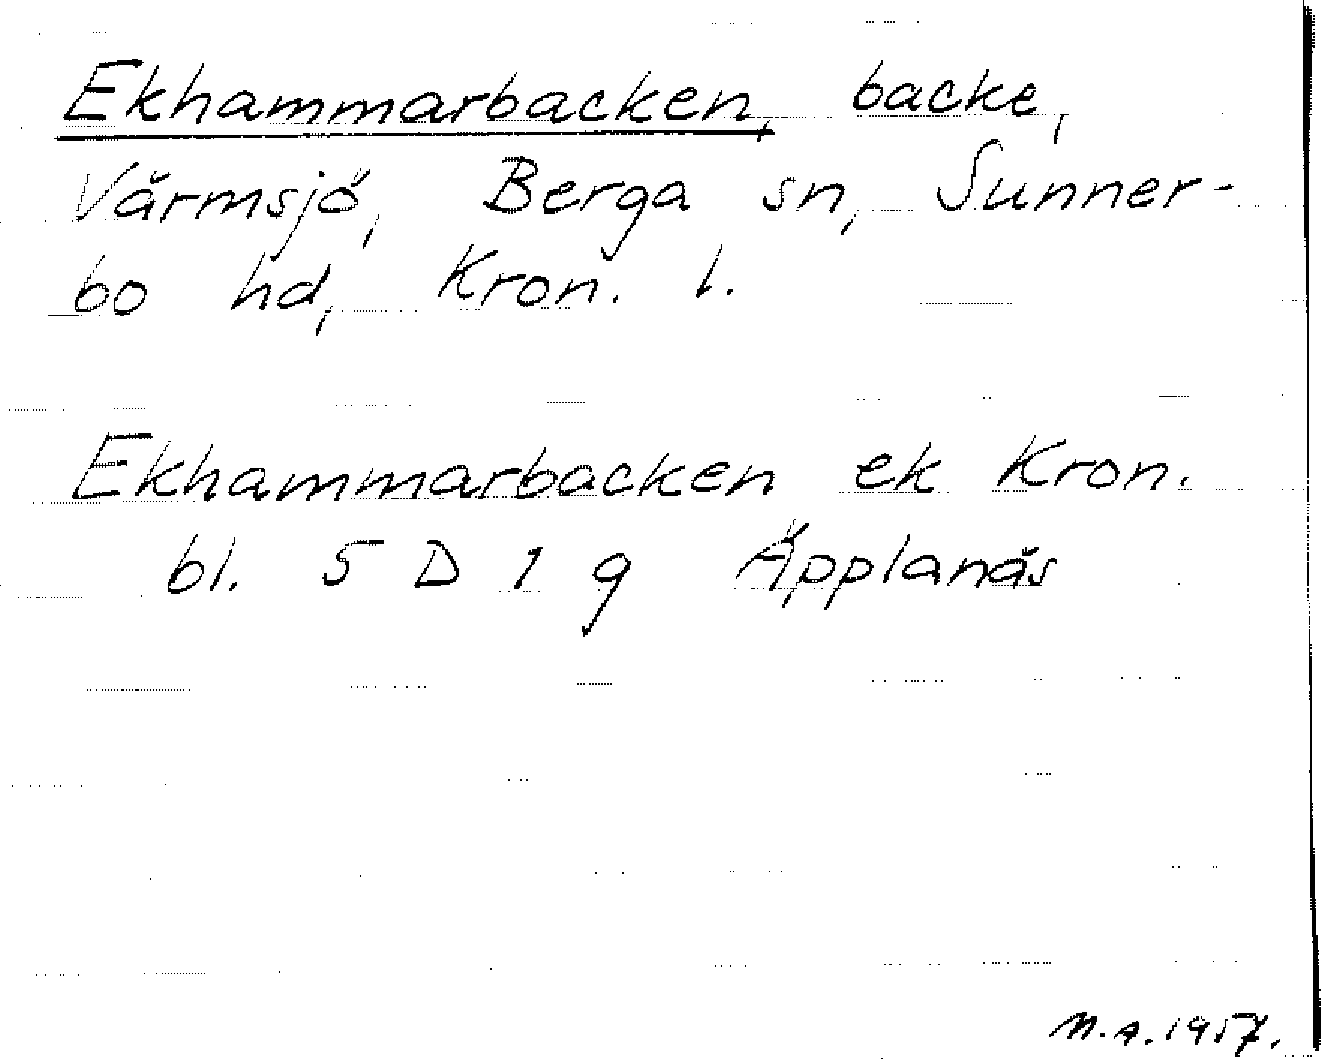 Ekhammarbacken, backe,
Värmsjö, Berga sn, Sunner-
bo hd, Kron. l.
Ekhammarbacken ek Kron.
bl. 5 D 1 g Äpplanäs
M.A. 1957.